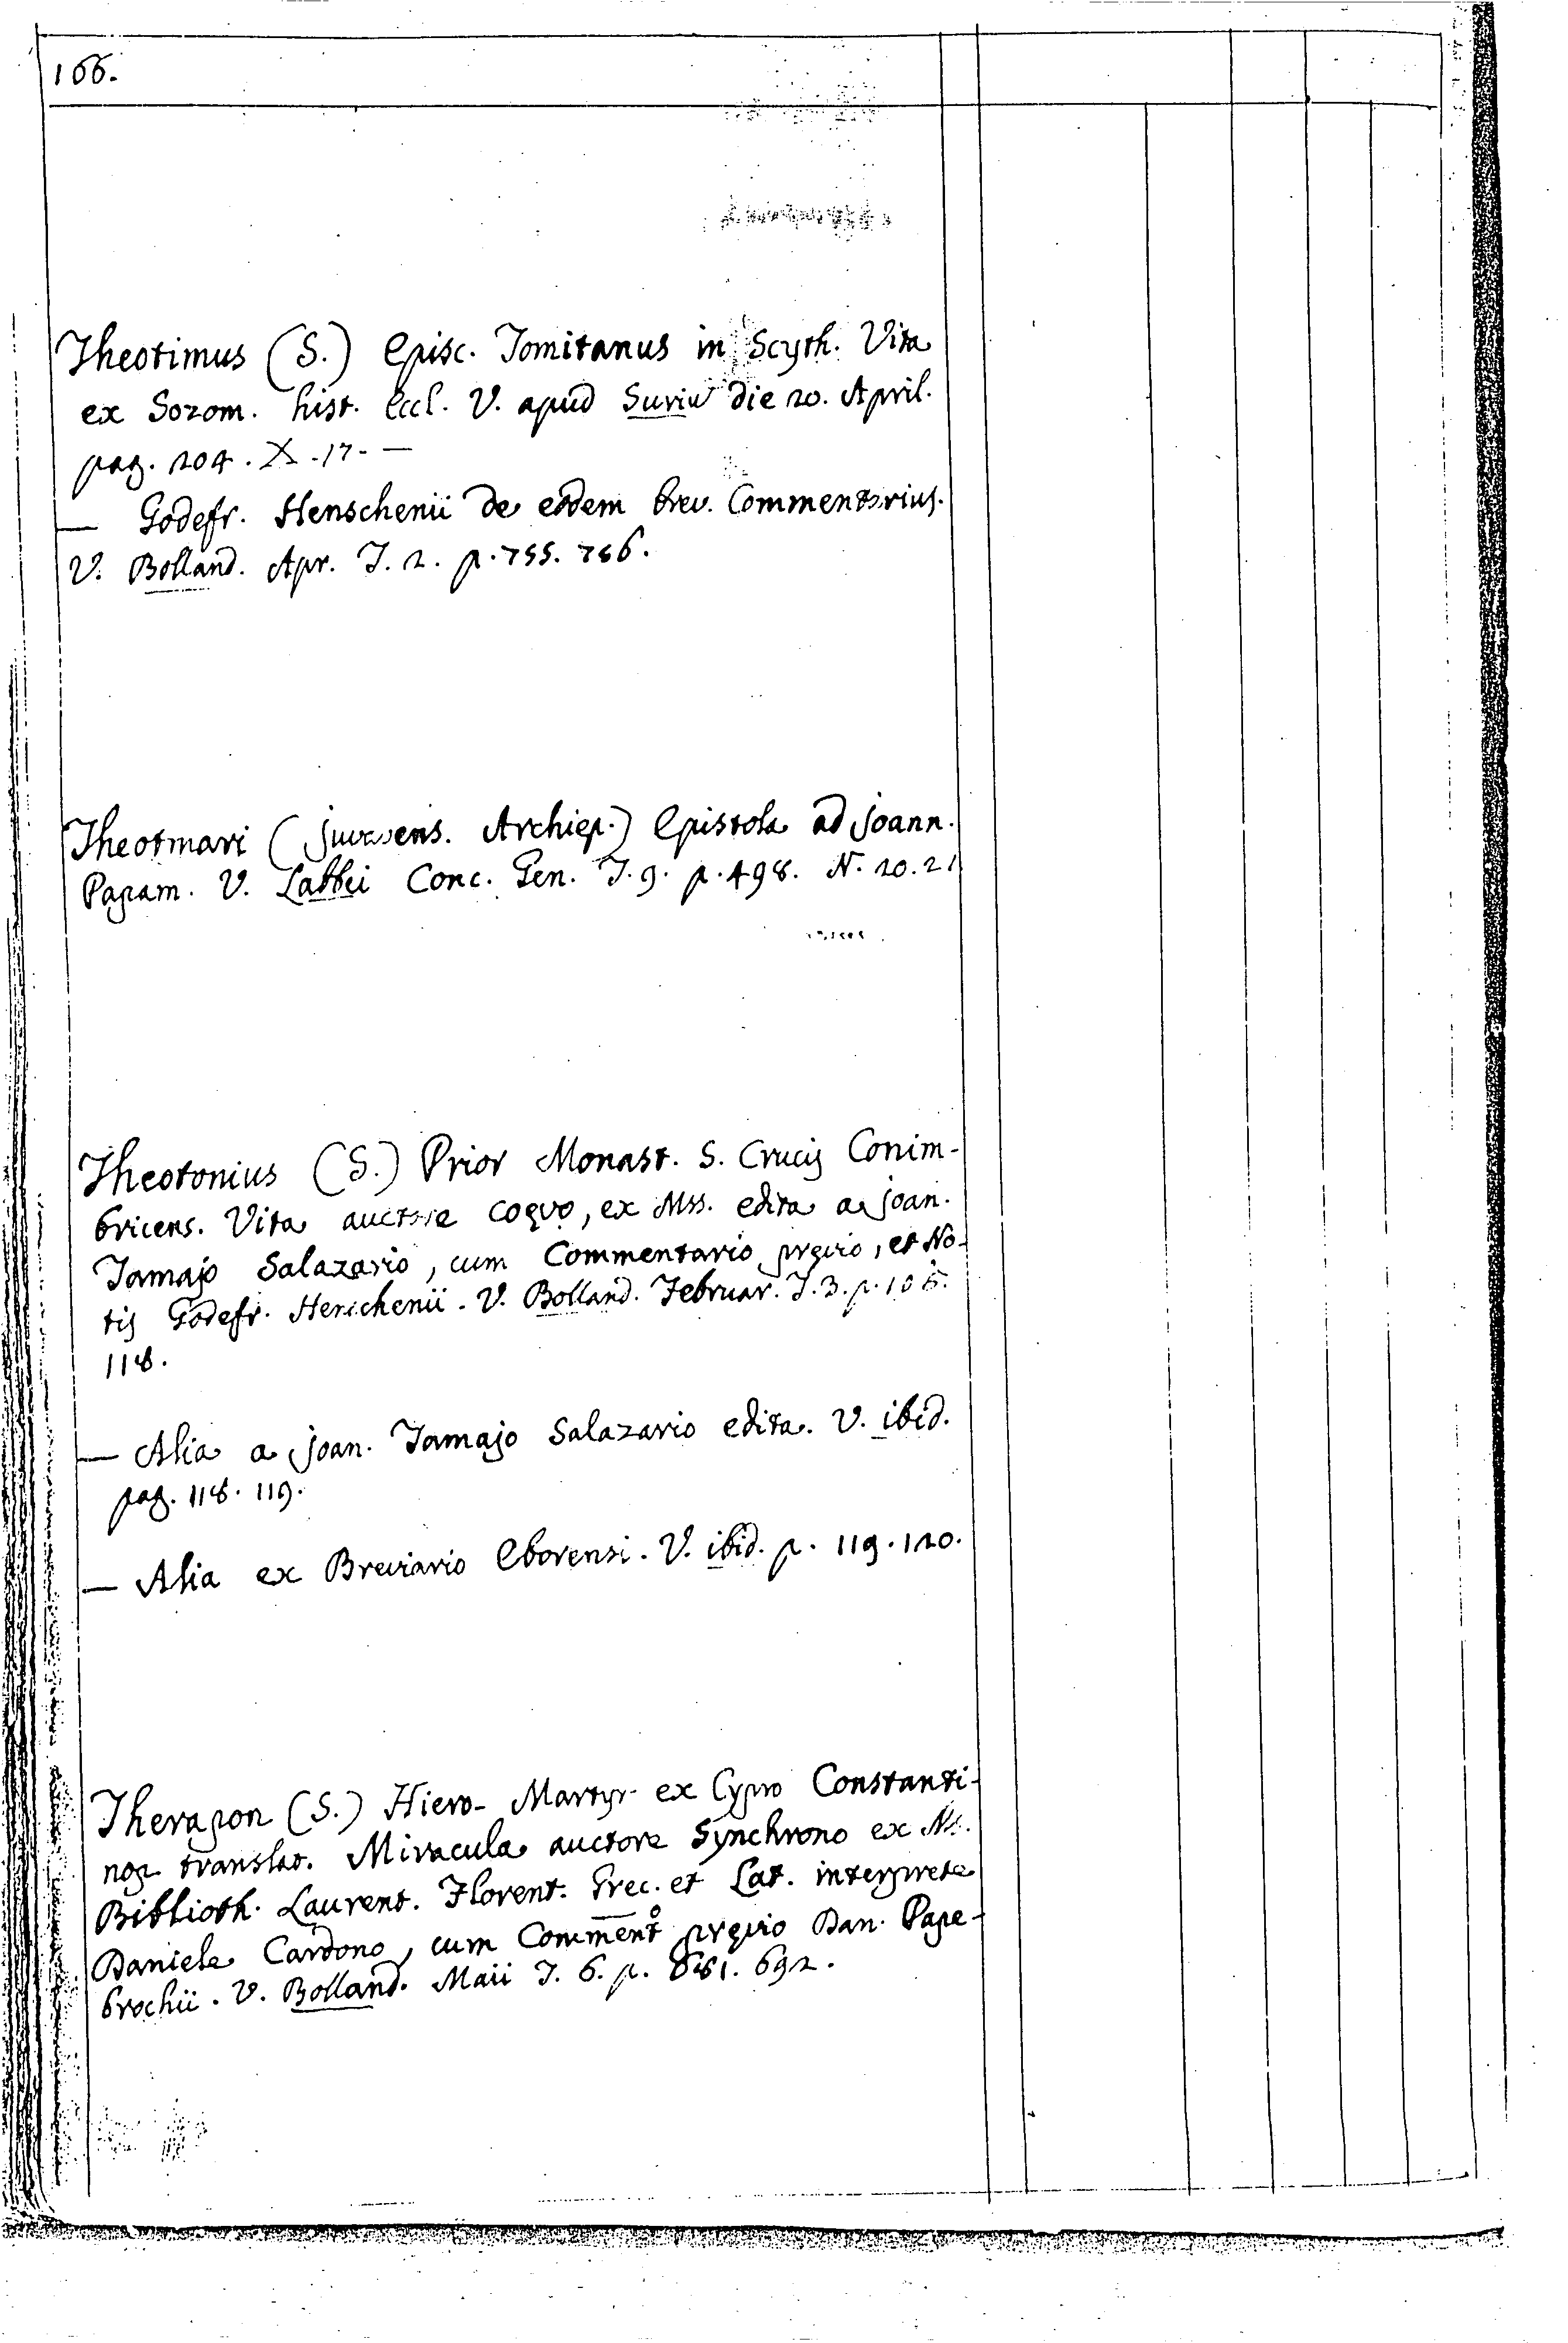 166.
Theotimus (S.) Episc. Tomitanus in Scyth. Vita
ex Sozom. hist. Eccl. V. apud Suriū die 20. April.
pag. 204. X. 17. —
— Godefr. Henschenii de eodem brev. Commentarius.
V. Bolland. Apr. T. 2. p. 755. 756.
Theotmari (Juvavens. Archiep.) Epistola ad Joann.
Papam. V. Labbei Conc. Gen. T. 9. p. 498. N. 20. 21
Theotonius (S.) Prior Monast. S. Crucis Conim-
bricens. Vita auctore coęvo, ex Mss. edita a Joan.
Tamajo Salazario, cum Commentario pręvio, et No-
tis Godefr. Henschenii. V. Bolland. Februar. T. 3. p.
118.
— Alia a Joan. Tamajo Salazario edita. V. ibid.
pag. 118. 119.
— Alia ex Breviario Eborensi. V. ibid. p. 119. 120.
Therapon (S.) Hiero-Martyr ex Cypro Constanti-
nop. translat. Miracula auctore Synchrono ex Ms.
Biblioth. Laurent. Florent. Gręc. et Lat. interprete
Daniele Cardono, cum Comment.º pręvio Dan. Pape-
brochii. V. Bolland. Maii T. 6. p. 681. 692.